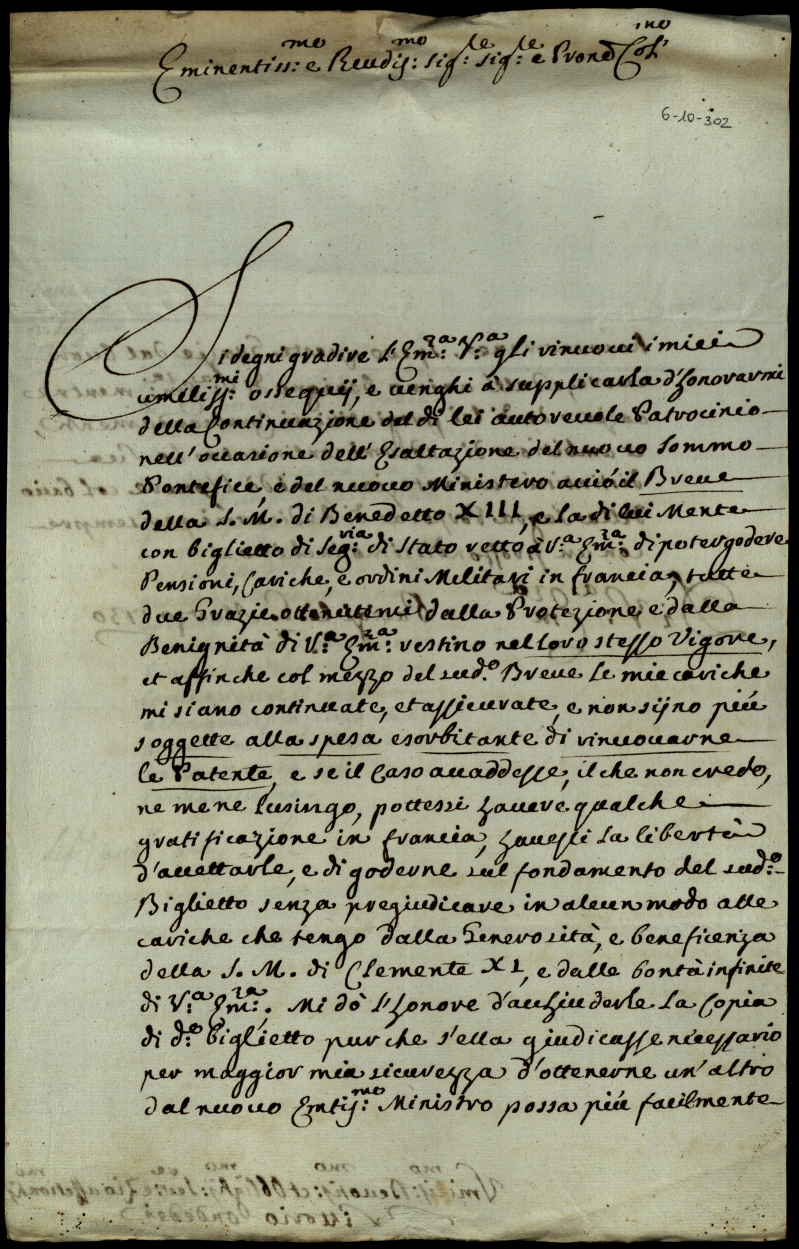 Eminentiss:mo e Reudiss:mo Sig:re Sig:re e Prone Col:mo
6-10-302
Si degni gradire l'Em:za V:a gli rinuoui i miei
umiliss:mi ossequij, e uenghi à supplicarla d'honorarmi
della Continuazione del di lei autoreuole Patrocinio
nell'occasione dell'Esaltazione del nuouo Sommo
Pontefice, e del nuouo Ministero acciò il Breue
della S. M. di Benedetto XIII, e la di lui Mente
con biglietto di Seg:ria di Stato retto à V:a Em:za di poter godere
Pensioni, Cariche, e ordini Militari in francia, tutte
due Grazie ottenutemi dalla Protezione e dalla
Benignità di V:a Em:za restino nel loro stesso Vigore,
et affinche col mezzo del sud:o Breue le mie cariche
mi siano continuate, et assicurate, e non sijno più
soggette alla spesa esorbitante di rinuouarne
le Patente, e se il Caso accaddesse, il che non credo,
ne me ne lusingo, potessi hauere qualche
gratificazione in francia, hauessi la libertà
d'accettarle, e di goderne sul fondamento del sud:o
Biglietto senza pregiudicare in alcun modo alle
cariche che tengo dalla Generosità, e beneficenza
della S. M. di Clemente XI, e dalle bontà infinite
di V:a Em:za. Mi dò l'honore d'acchiuderle la Copia
di d:o biglietto pur che s'ella giudicasse necessario
per maggior mia sicurezza d'ottenerne un'altro
dal nuouo Emtiss:mo Ministro possa più facilmente